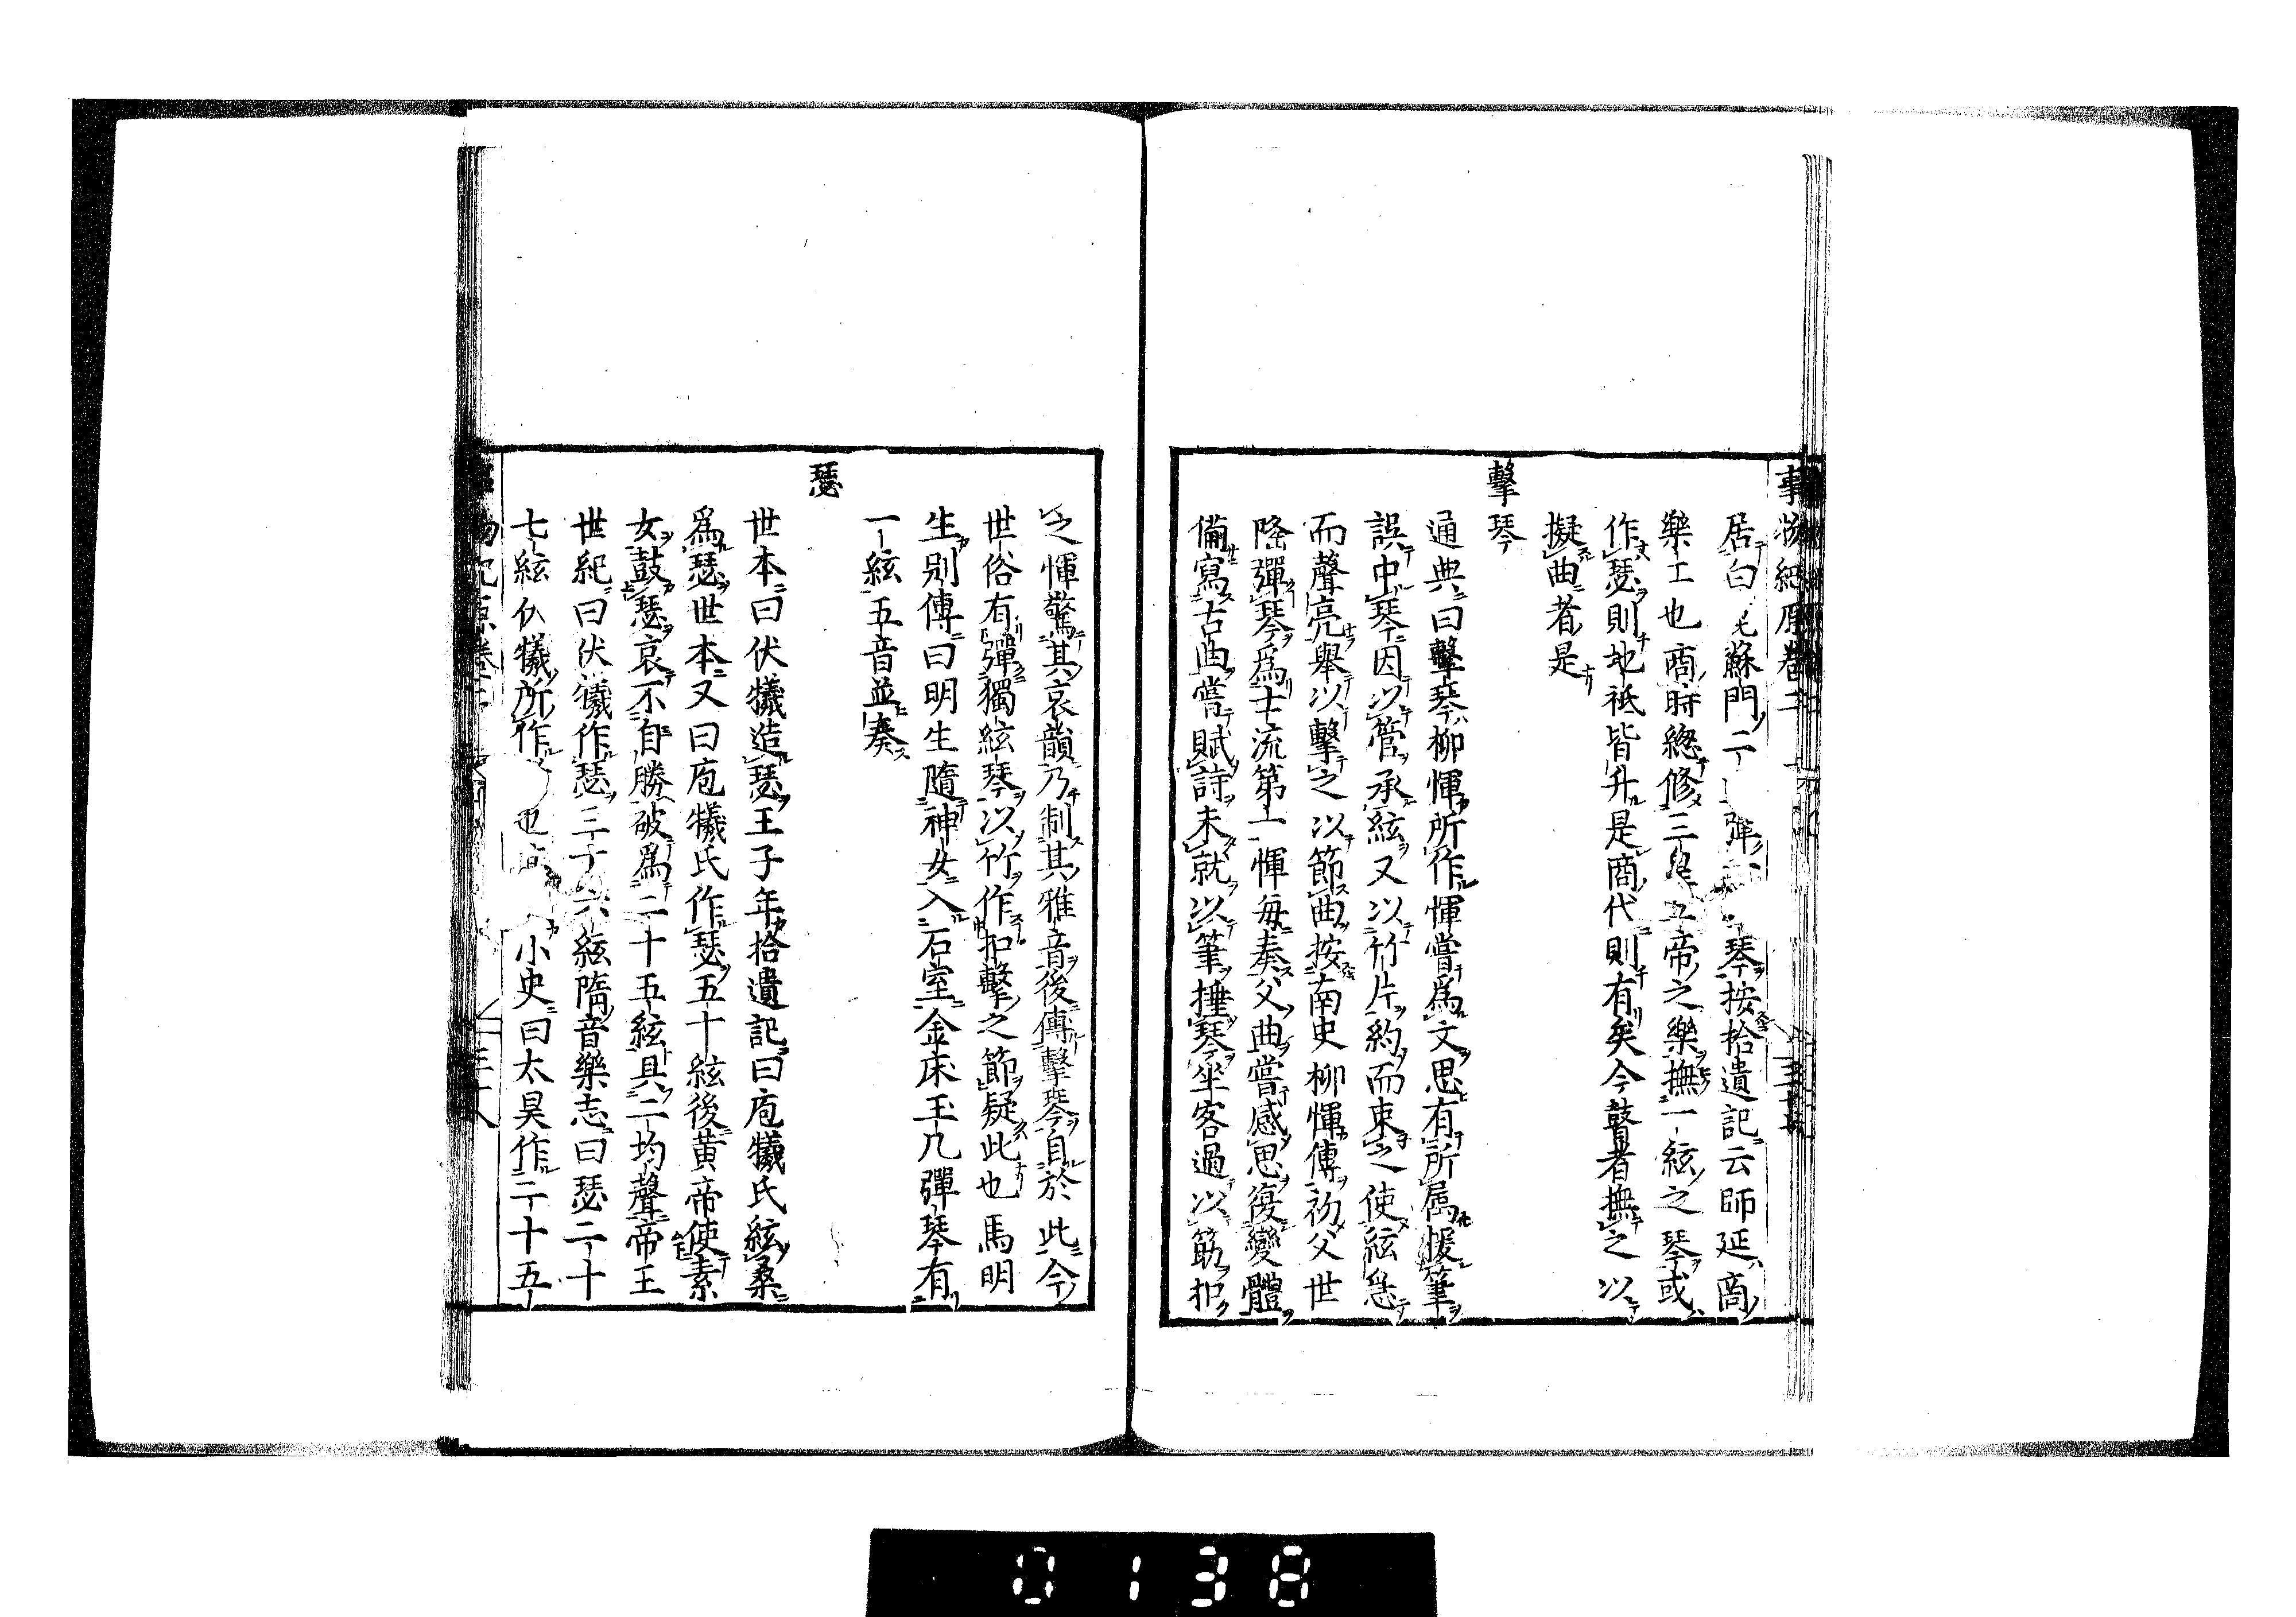 事物紀原卷二
居白蘇門二彈琴按拾遺記云師延商
樂工也商時總修三皇五帝之樂撫一絃之琴或
作瑟則地祇皆升是商代則有矣今瞽者撫之以
擬曲者是
擊琴
通典曰擊琴柳惲所作惲嘗爲文思有所属愋筆
誤中琴因以管承絃又以竹片約而束之使絃急
而聲亮舉以擊之以節曲按南史柳惲傳初父世
隆彈琴爲士流第一惲毎奏父曲嘗感思復變體
備寫古曲嘗賦詩未就以筆捶琴坐客過以筯扣
之惲驚其哀韻乃制其雅音後傳擊琴自於此今
世俗有彈獨絃琴以竹作扣擊之節疑此也馬明
生别傳曰明生隨神女入石室金床玉几彈琴有
一絃五音並奏
瑟
世本曰伏犧造瑟王子年拾遺記曰庖犧氏絃桑
爲瑟世本又曰庖犧氏作瑟五十絃後黄帝使素
女鼓瑟哀不自勝破爲二十五絃具二均聲帝王
世紀曰伏犧作瑟三十六絃隋音樂志曰瑟二十
七絃伏犧所作也小史曰太昊作二十五
0138